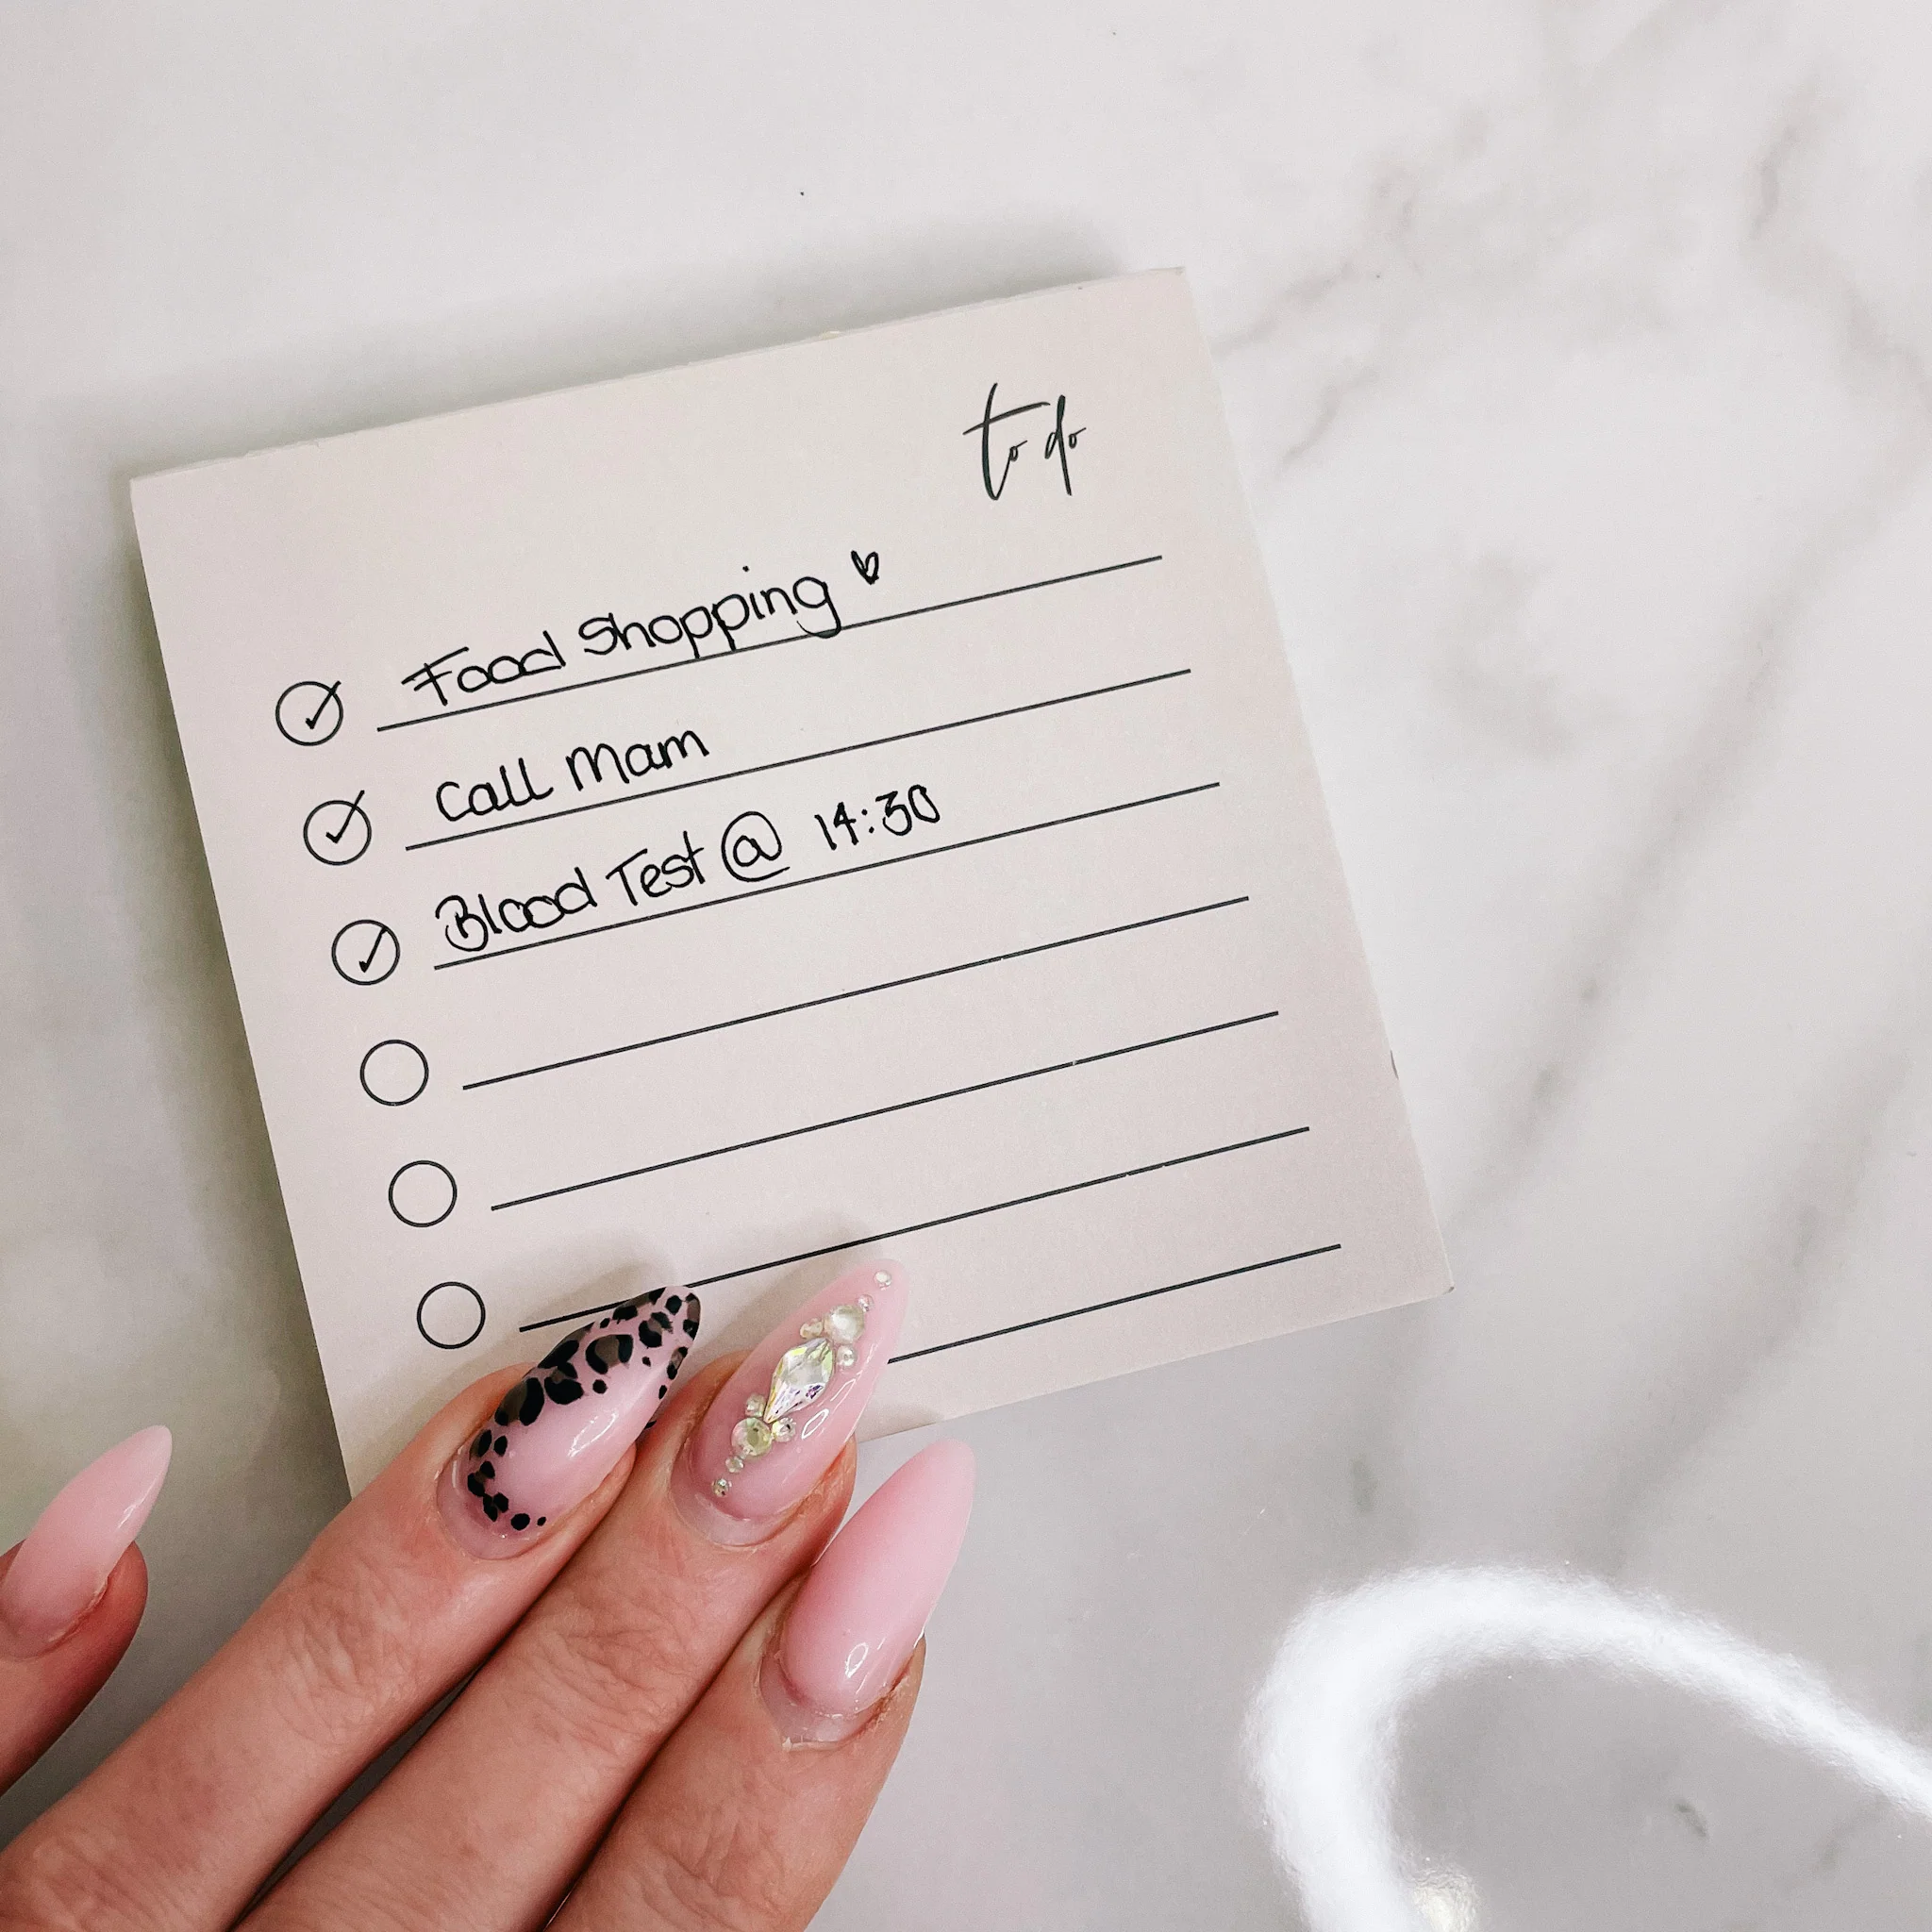 to do
Food Shopping
Call Mam
Blood Test @ 14:30